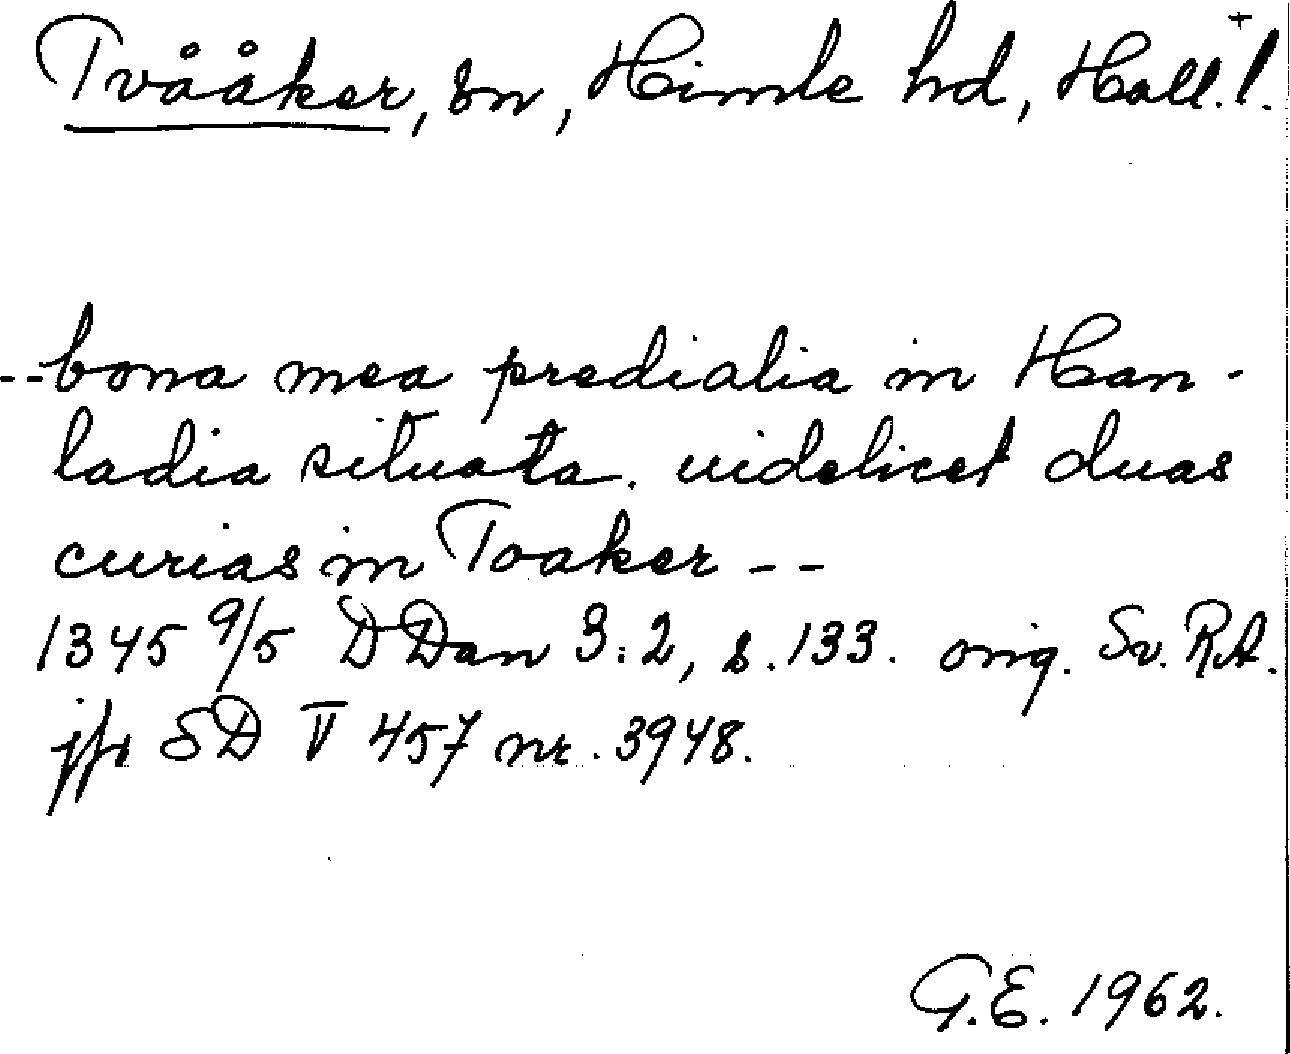 Tvååker, sn, Himle hd, Hall. l.
+
--bona mea predialia in Han-
ladia situata. uidelicet duas
curias in Toaker --
1345 9/5 DDan 3:2, s. 133. orig. Sv. RA.
jfr SD V 457 nr. 3948.
G.E. 1962.